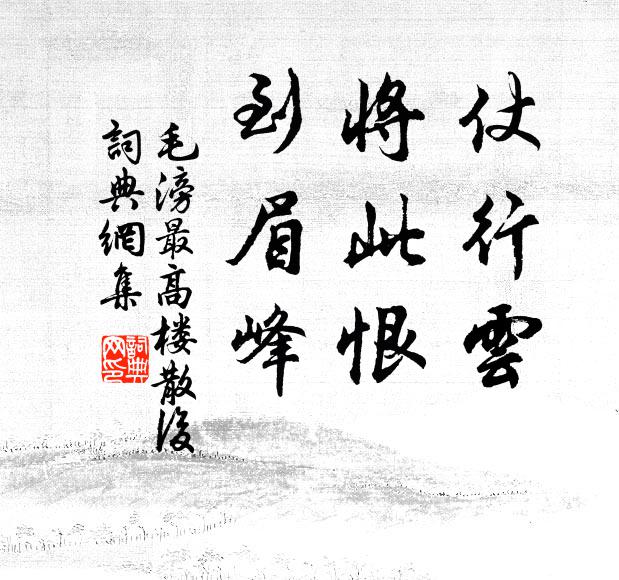 仗行雲
將此恨
到眉峰
毛滂最高楼散後
詞典網集
詞典網印